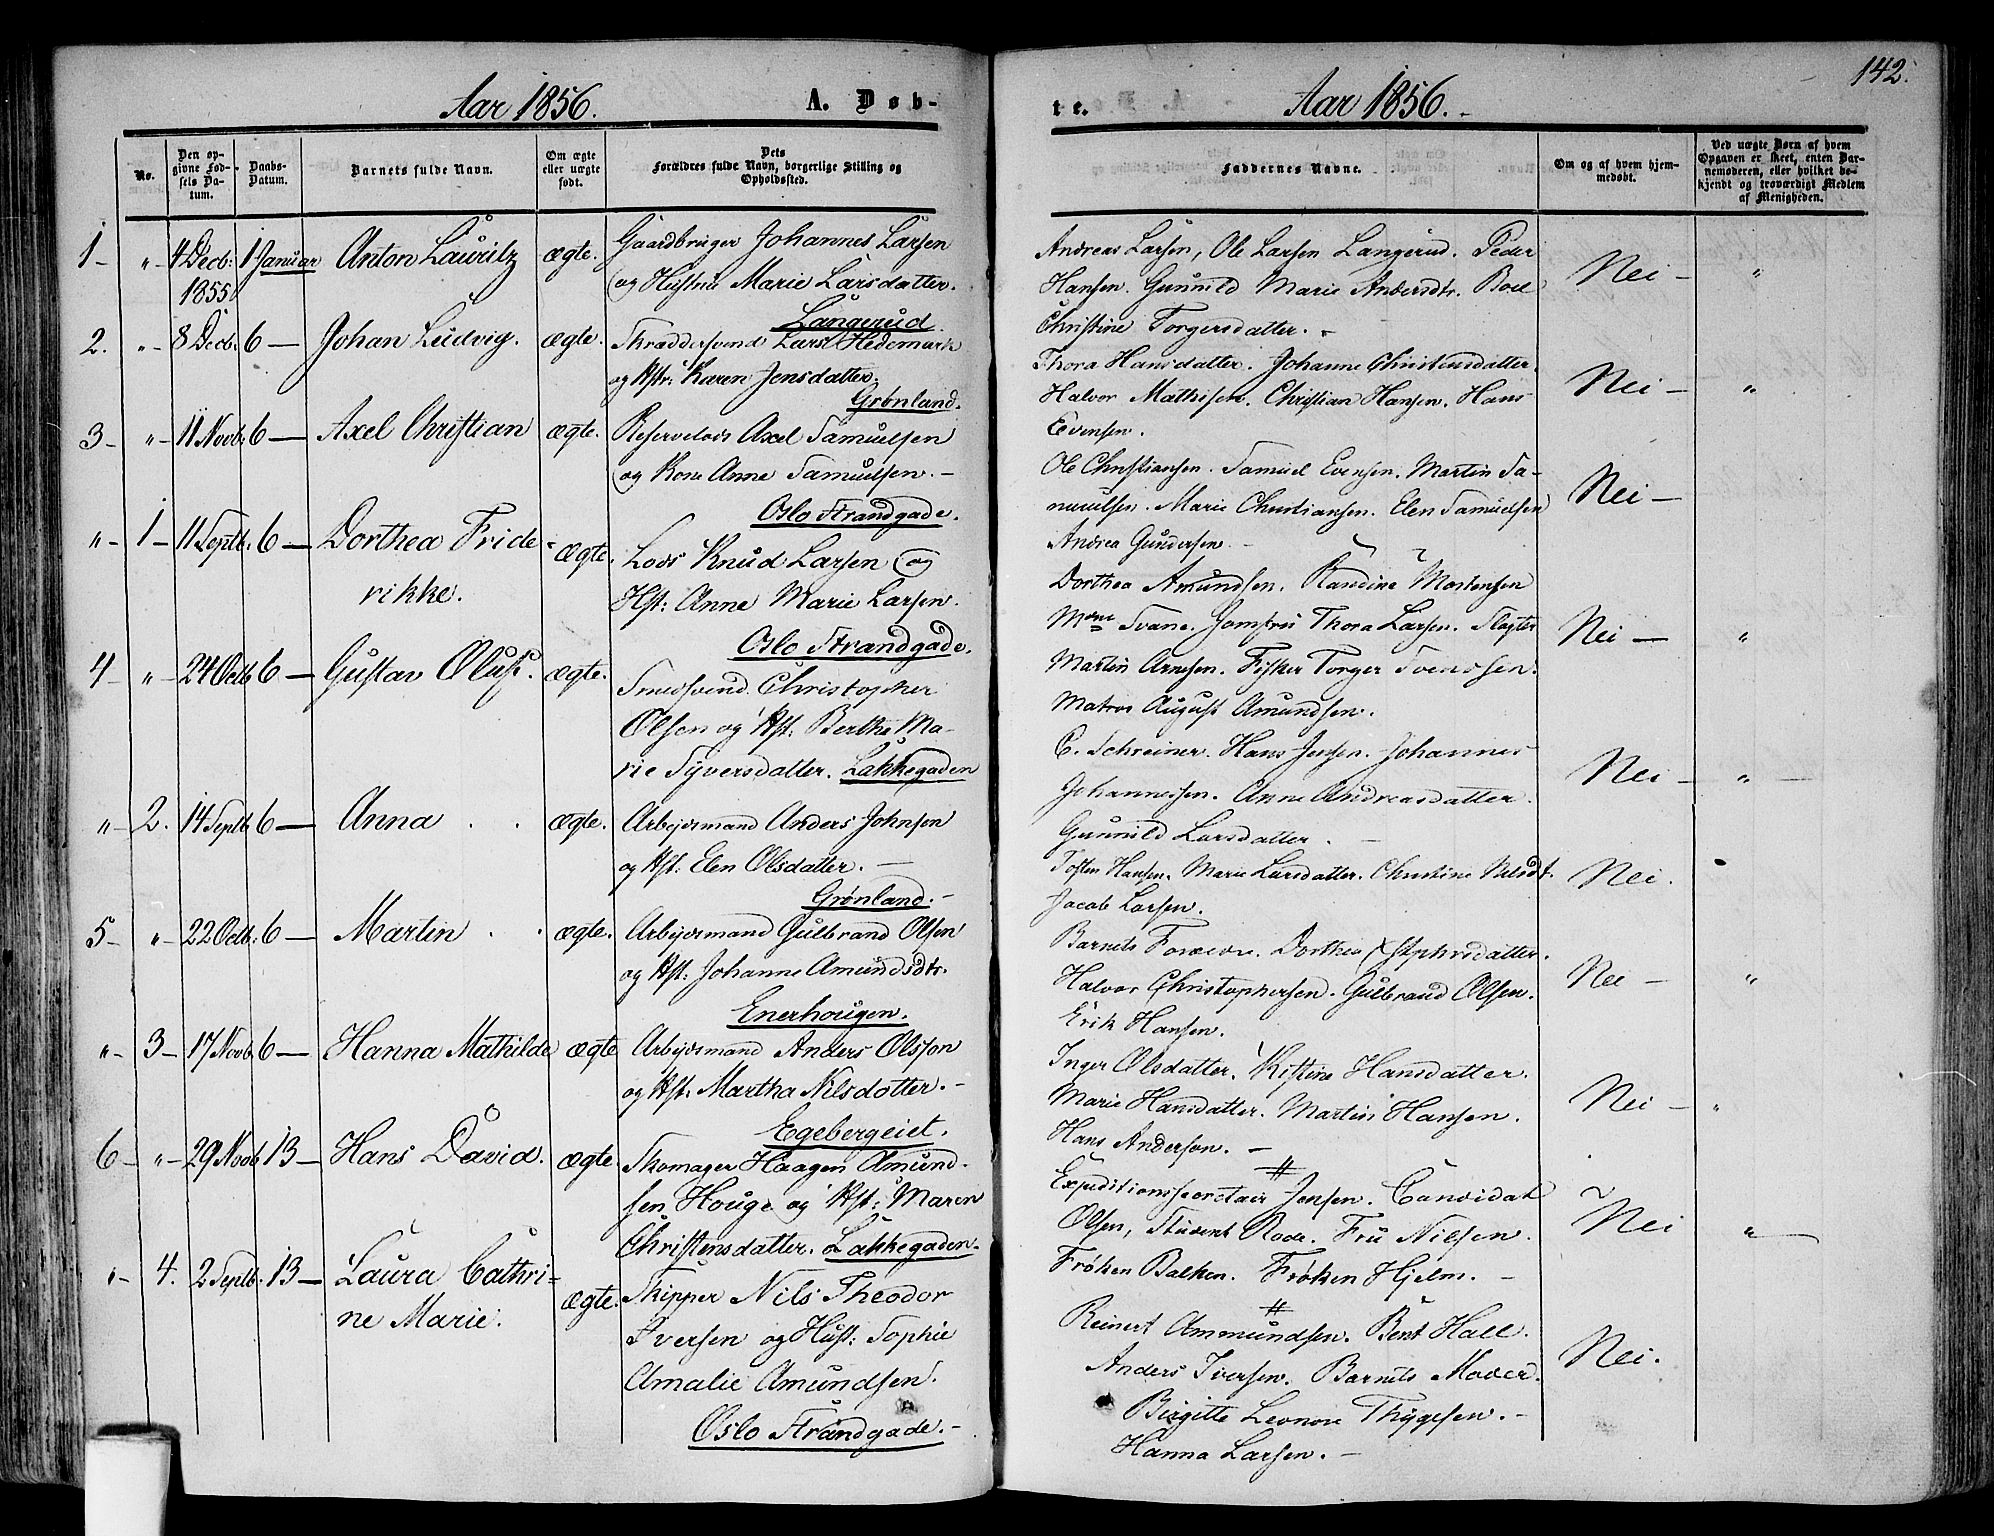 142.
Aar 1856. A. Døb-
te. Aar 1856.
No.
Den op-
givne Fød-
sels Da-
tum.
Daabs-
Datum.
Barnets fulde Navn.
Om ægte
eller uægte
født.
Dets
Forældres fulde Navn, borgerlige Stilling og
Opholdssted.
Faddernes Navne.
Om og af hvem hjem-
medøbt.
Ved uægte Børn af hvem
Opgaven er skeet, enten Bar-
nemoderen, eller hvilket be-
kjendt og troværdigt Medlem
af Menigheden.
1 - " 4 Decb: 1 Januar Anton Lauritz ægte. Gaardbruger Johannes Larsen
1855 og Hustru Marie Larsdatter.
Langerud.
Andreas Larsen, Ole Larsen Langerud. Peder
Hansen. Gunnild Marie Andersdtr. Boel
Christine Torgersdatter. -
Nei - "
2. " 8 Decb: 6 - Johan Ludvig. ægte. Skræddersvend Lars Hedemark
og Hstr: Karen Jensdatter,
Grønland.
Thora Hansdatter. Johanne Christensdatter.
Halvor Mathisen. Christian Hansen. Hans
Evensen.
Nei - "
3 - " 11 Novb: 6 - Axel Christian ægte. Reservelods Axel Samuelsen
og Kone Anne Samuelsen. -
Oslo Strandgade.
Ole Christiansen. Samuel Evensen. Martin Sa-
muelsen. Marie Christiansen. Elen Samuelsen
Andrea Gundersen -
Nei -
" - 1 - 11 Septb: 6 - Dorthea Fride-
rikke. ægte. Lods Knud Larsen og
Hst: Anne Marie Larsen.
Oslo Strandgade.
Dorthea Amundsen. Randine Mortensen
Mdme Svane. Jomfru Thora Larsen. Slagter
Martin Arnesen. Fisker Torger Svendsen.
Matros August Amundsen.
Nei - "
4 - " 24 Octb: 6 - Gustav Oluf. ægte. Smedsvend Christopher
Olsen og Hst: Berthe Ma-
rie Syversdatter. Lakkegaden
C. Schreiner. Hans Jensen. Johannes
Johannessen. Anne Andreasdatter.
Gunnild Larsdatter. -
Nei - " -
" - 2. 14 Septb: 6 - Anna ægte. Arbejdsmand Anders Johnsen
og Hst: Elen Olsdatter. -
Grønland. -
Tosten Hansen. Marie Larsdatter. Christine Nilsdt.
Jacob Larsen.
Nei.
5 - " 22 Octb: 6 - Martin ægte. Arbejdsmand Gulbrand Olsen
og Hst: Johanne Amundsdtr.
Enerhougen.
Barnets Forældre. Dorthea Christophersdatter.
Halvor Christophersen. Gulbrand Olsen.
Erik Hansen.
Nei - "
" - 3 - 17 Novb: 6 - Hanna Mathilde ægte Arbejdsmand Anders Olsson
og Hst: Martha Nilsdotter. -
Egebergeiet.
Inger Olsdatter. Kistine Hansdatter.
Marie Hansdatter. Martin Hansen.
Hans Anderson. -
Nei - "
6 - " 29 Novb: 13 - Hans David. ægte Skomager Haagen Amund-
sen Houge og Hst: Maren
Christensdatter. Lakkegaden -
Expeditionssecretair Jensen. Candidat
Olsen, Student Rode. Fru Nilsen.
Frøken Balken. Frøken Hjelm. -
Nei "
" - 4. 2 Septb: 13 - Laura Cathri-
ne Marie. ægte. Skipper Nils Theodor
Iversen og Hust: Sophie
Amalie Amundsen.
Oslo Strandgade. -
Reinert Ammundsen. Bent Hall.
Anders Iversen. Barnets Moder.
Birgitte Leonore Thygesen. -
Hanna Larsen. -
Nei.